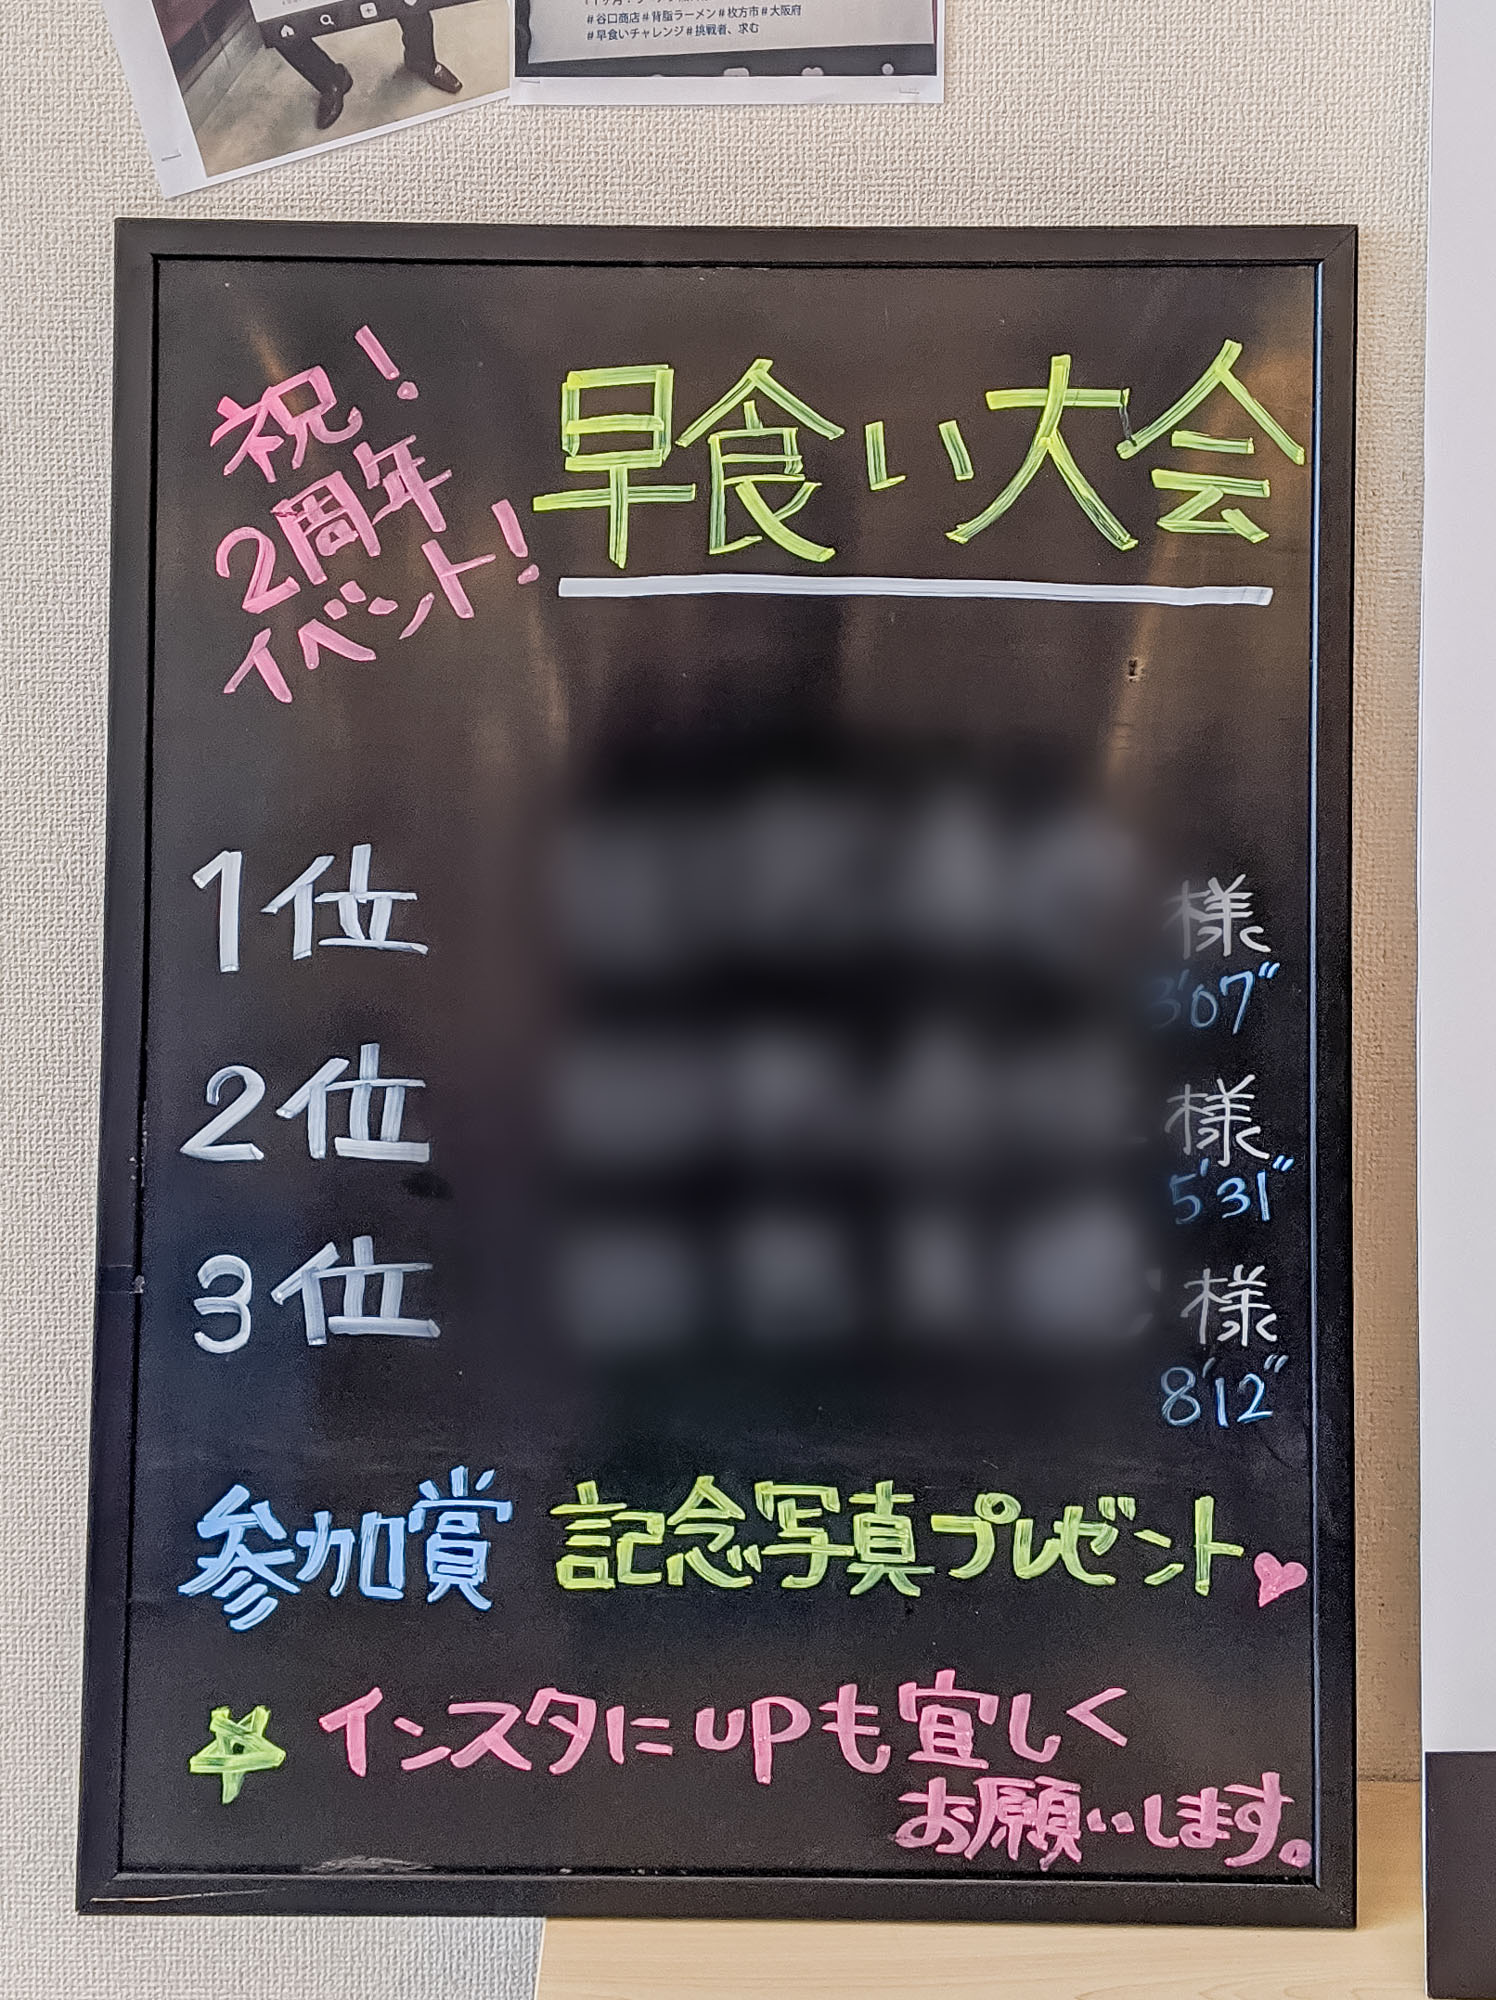 #谷口商店#背脂ラーメン#枚方市#大阪府
#早食いチャレンジ#挑戦者、求む
祝!
2周年
イベント!
早食い大会
1位
様
3'07"
2位
様
5'31"
3位
様
8'12"
参加賞 記念写真プレゼント
インスタにupも宜しく
お願いします。